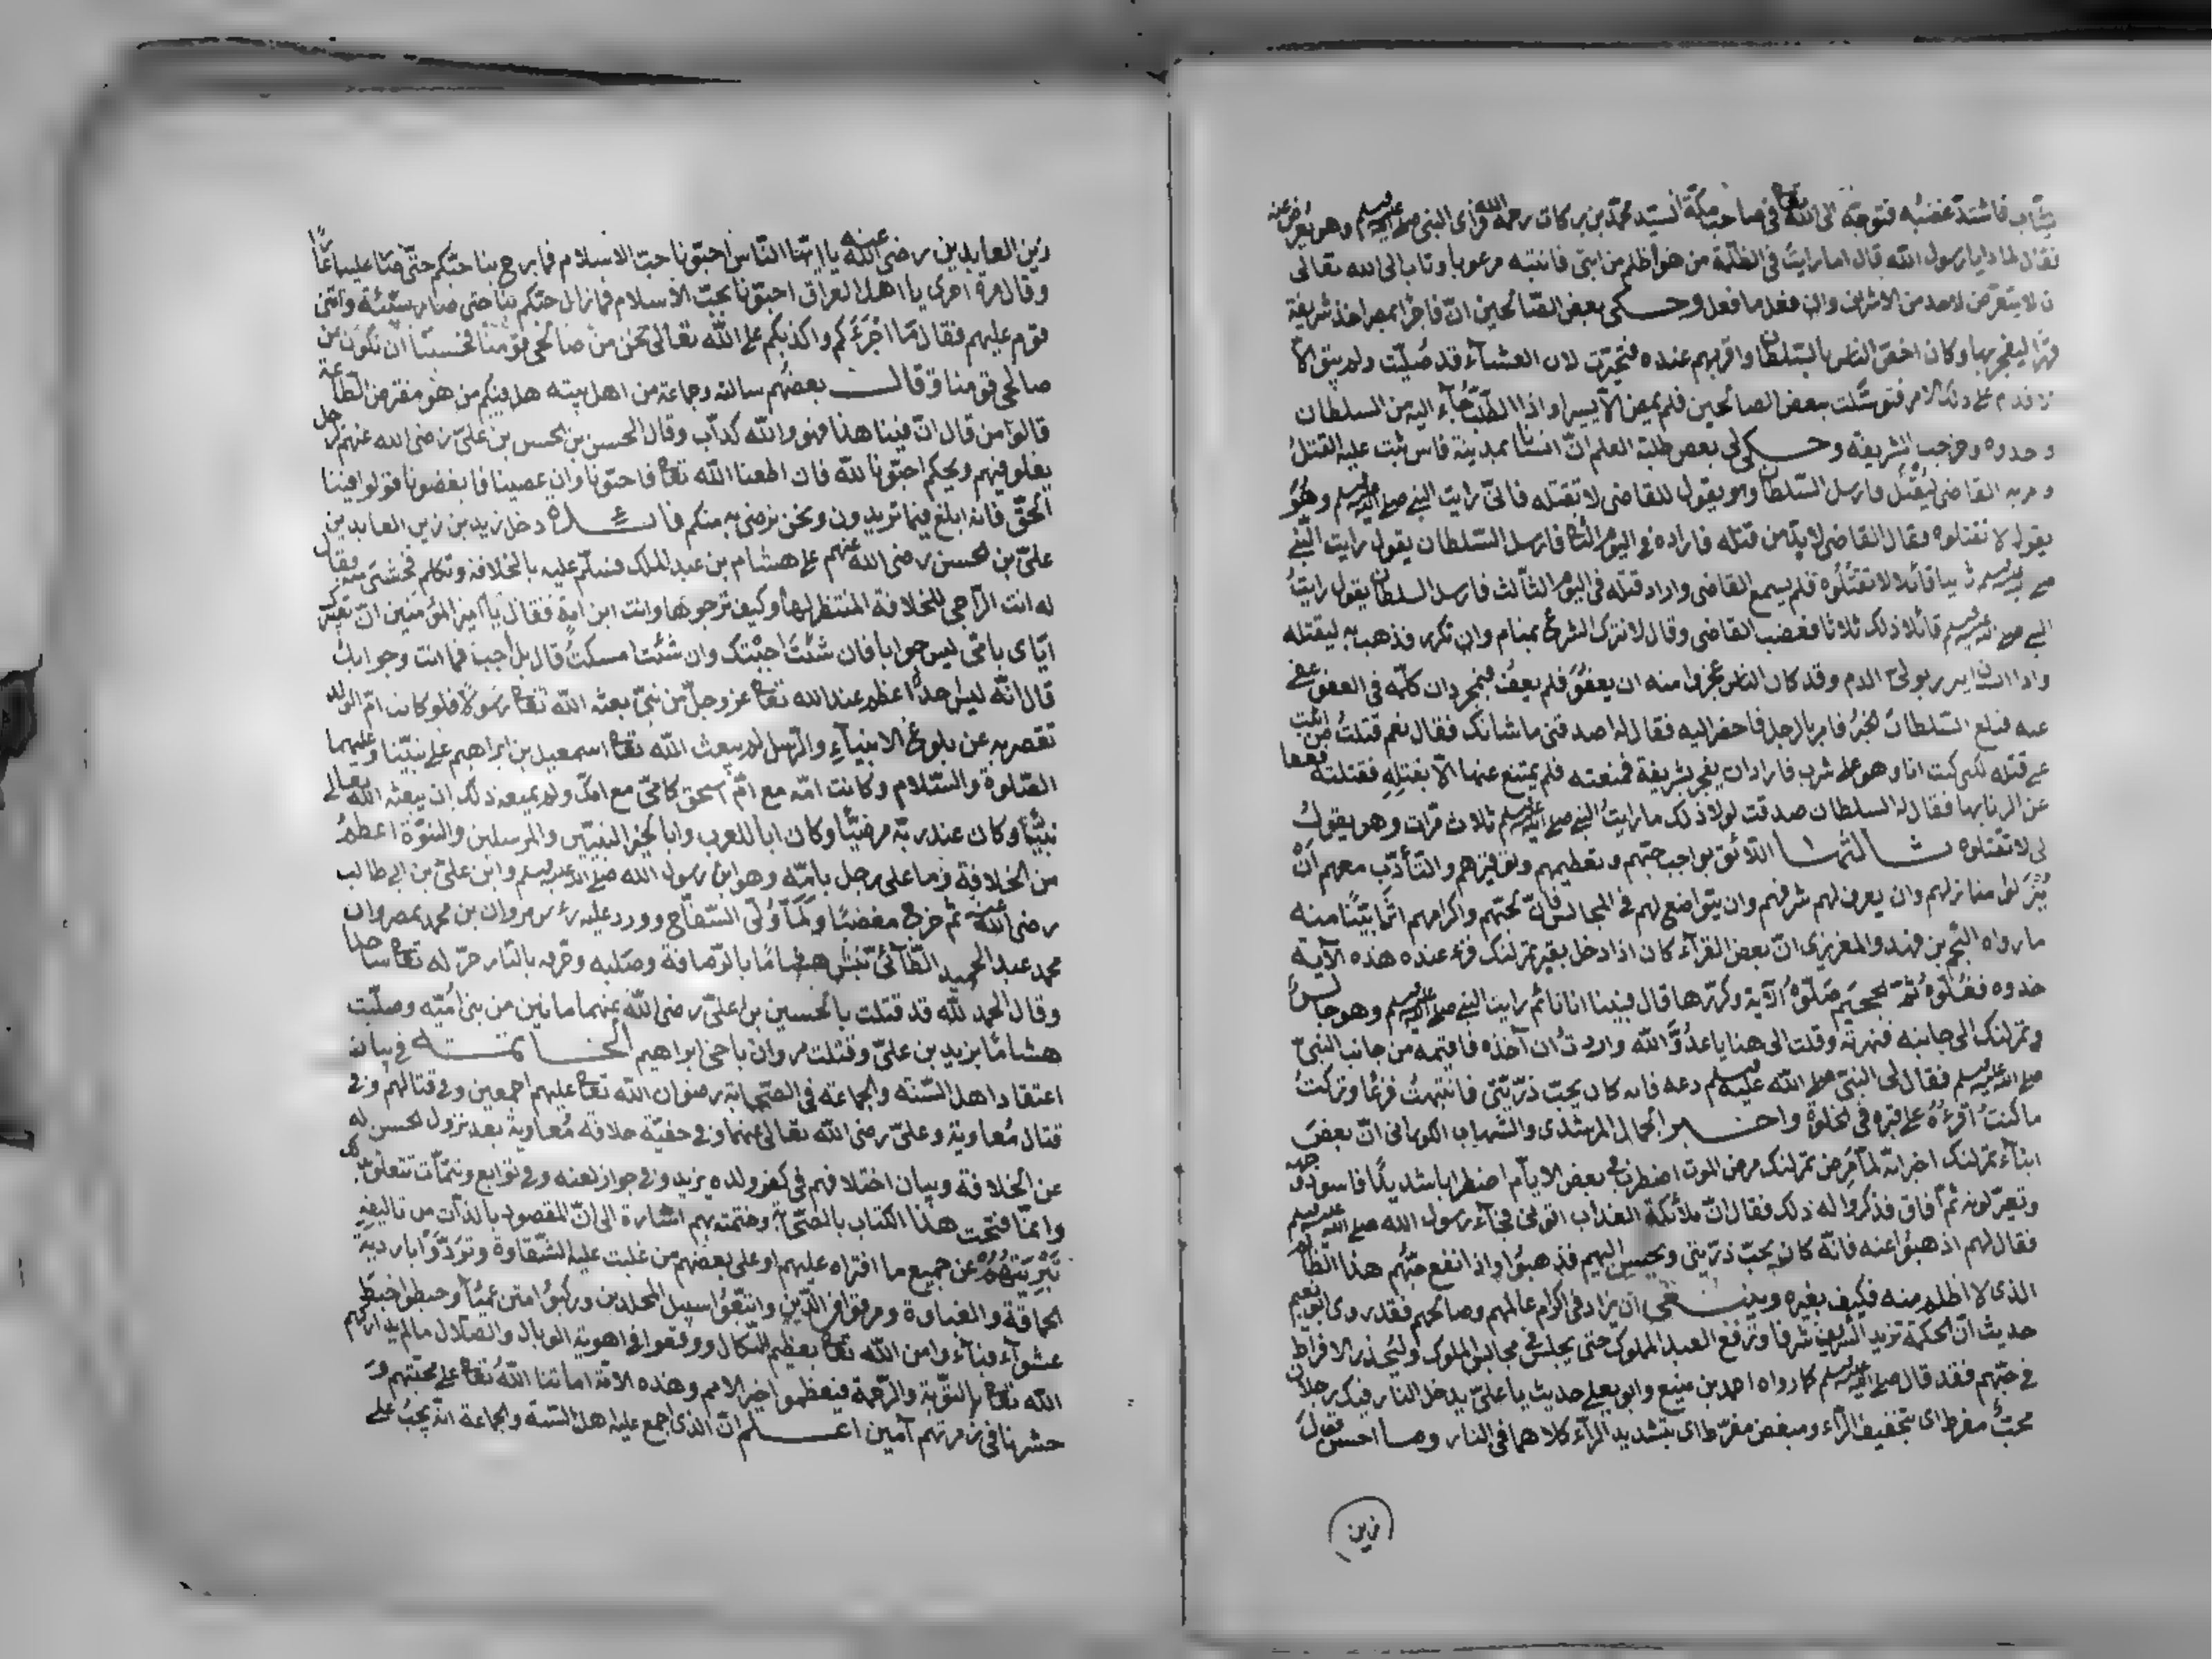 بشّاب فاشتدّ غضبُه فتوجّه الى الله تعا في صاحب مكّة السّيد محمّد بن بركات رحمه الله فرأى النبي صلى الله عليه وسلم وهو يُعرض عنه
فقال لماذا يا رسول الله قال اما رايتَ في الظلمة من هو اظلم من ابني فانتبه مرعوبا وتاب الى الله تعالى
ان لا يتعرّض لاحد من الاشراف وان فعل ما فعل وحكى بعض الصّالحين انّ فاجرًا بمصر اخذ شريفة
قهرًا ليفجر بها وكان اخصّ الناس بالسّلطان واقربهم عنده فتحيّرت لان العشاء قد صُلّيت ولم يبق الّا
الاقدام على ذلك الامر فتوسّلت ببعض الصالحين فلم يمض الّا يسيرا واذا الطّلب جاء اليه من السلطان
وخرجت الشريفة وحكى لي بعض طلبة العلم انّ انسانًا بمدينة فاس ثبت عليه القتلُ
وامر به القاضي ليُقْتَل فارسل السّلطان وهو يقول للقاضي لا تقتله فانّي رايت النبي صلى الله عليه وسلم وهُوَ
يقول لا تقتلوه فقال القاضي لا بدّ من قتله فاراده في اليوم الثّاني فارسل السّلطان يقول رايت النّبي
صلى الله عليه وسلم ثانيا قائلا لا تقتُلُوه فلم يسمع القاضي واراد قتله في اليوم الثّالث فارسل السلطان يقول رايتُ
النبي صلى الله عليه وسلم قائلا ذلك ثلاثا فغضب القاضي وقال لا نترك الشرع بمنام وان تكرر فذهب به ليقتله
واذا انسان يولي الدم وقد كان الناس عجزوا منه ان يعفُوَ فلم يعفُ فبمجرد ان كلّمه في العفو عفى
عنه فبلغ السّلطان الخبرُ فامر بالرجل فاحضر اليه فقال له اصدقني ما شانك فقال نعم قتلتُ من اثبت
على قتله لكنّي كنت انا وهو على شرب فاراد ان يفجر بشريفة فمنعته فلم يمتنع عنها الّا بقتله فقتلته دفعا
عن الزنا بها فقال له السلطان صدقت لولا ذلك ما رايتُ النبي صلى الله عليه وسلم ثلاث مرّات وهو يقولُ
لي لا تقتلوه ثالثها اللّائق بواجب حقّهم وتعظيمهم وتوقيرهم والتّأدّب معهم اَنْ
يُنْزَلوا منازلهم وان يعرف لهم شرفهم وان يتواضع لهم في المجالس فانّ لمحبّتهم واكرامهم اثرًا بيّنًا منه
ما رواه النّجم بن فهد والمقريزي انّ بعض القرّاء كان اذا دخل بقبر تمرلنك قرء عنده هذه الآية
خذوه فغُلّوه ثُمّ الجحيم صَلّوه الآية وكرّرها قال فبينا انا نائم رايت النبي صلى الله عليه وسلم وهو جالسٌ
وتمرلنك الى جانبه فنهرتُه وقلت الى هنا يا عدوَّ الله واردتُ ان آخذه فاقيمه من جانب النبيّ
صلى الله عليه وسلم فقال لي النبيّ صلى الله عليه وسلم دعه فانه كان يحبّ ذرّيّتي فانتبهتُ فزعًا وتركتُ
ما كنتُ اقرءُهُ على قبره في الخلوة واخبر الجمال المرشدي والشهاب الكوراني انّ بعضَ
ابناء تمرلنك اخبر انّه لمّا مَرِض تمرلنك مرض الموت اضطرب في بعض الايّام اضطرابا شديدًا فاسودّ وجهه
وتغيّر لونه ثمّ افاق فذكروا له ذلك فقال انّ ملائكة العذاب اتوني فجآء رسول الله صلى الله عليه وسلم
فقال لهم اذهبوا عنه فانّه كان يحبّ ذرّيتي ويحسن اليهم فذهبُوا واذا نفع حبُّهم هذا الظّالم
الذي لا اظلم منه فكيف بغيره وينبغي ان يزاد في اكرام عالمهم وصالحهم فقد روى ابو نعيم
حديث انّ الحكمة تزيد الشّريف شرفًا وترفع العبد المملوك حتى يجلس في مجالس الملوك وليُحذر الافراط
في حبّهم فقد قال صلى الله عليه وسلم كما رواه احمد بن منيع وابو يعلى حديث يا عليّ يدخل النار فيك رجلان
محبٌّ مفرط اى بتخفيف الرّاء ومبغض مفرّط اى بتشديد الرّاء كلاهما في النار وما احسن قولَ
زين
زين العابدين رضى الله عنه يا ايّها النّاس احبّونا حبّ الاسلام فما برح بنا حبّكم حتّى صار علينا عارًا
وقال مرة اخرى يا اهل العراق احبّونا بحبّ الاسلام فما زال حبّكم بنا حتى صار سيّئة واثنى
قوم عليهم فقال مَا اَجْرَءَكم واكذبكم على الله تعالى نحن من صالحي قومنا فحسبُنا ان نكون من
صالحي قومنا وقال بعضُهم سالته وجماعة من اهل بيته هل فيكم من هو مفترض الطّاعة
قالوا من قال انّ فينا هذا فهو والله كذّاب وقال الحسن بن الحسن بن عليّ رضى الله عنهم لرجل
يغلو فيهم ويحكم احبّونا لله فان اطعنا الله تعا فاحبّونا وان عصينا فابغضونا قولوا فينا
الحقّ فانه ابلغ فيما تريدون ونحن نرضى به منكم فائدة دخل زيد بن زين العابدين
عليّ بن الحسين رضى الله عنهم على هشام بن عبد الملك فسلّم عليه بالخلافة وتكلم فخشى منه فقال
له انت الرّاجي للخلافة المنتظر لها وكيف ترجوها وانت ابن امة فقال يا امير المؤمنين انّ تعييرك
ايّاى بامّى ليس جوابا فان شئتَ اجبْتك وان شئتَ امسكتُ قال بل اجب فما انت وجوابك
قال انّه ليس احدٌ اعظم عند الله تعا عزّ وجلّ من نبيّ بعثه الله تعا رسولًا فلو كانت امّ الولد
تقصر به عن بلوغ الانبياء والرّسل لم يبعث الله تعا اسمعيل بن ابراهيم على نبيّنا وعليهما
الصّلوة والسّلام وكانت امّه مع امّ اسحق كامّي مع امّك ولم يمنعه ذلك ان يبعثه الله تعالى
نبيًّا وكان عند ربّه مرضيًّا وكان ابا للعرب وابا لخير النبيّين والمرسلين والنبوّة اعظمُ
من الخلافة وما على رجل بامّه وهو ابن رسول الله صلى الله عليه وسلم وابن عليّ بن ابي طالب
رضى الله عنه ثم خرج مغضبًا ولَمّا وُلّى السّفّاح وورد عليه راس مروان بن محمد بمصر وان
محمد عبد الحميد الطّائيّ نبش هشامًا بالرّصافة وصلبه وحرقه بالنّار خرّ له تعا ساجدا
وقال الحمد لله قد قتلت بالحسين بن عليّ رضى الله عنهما مائتين من بني اميّه وصلّبت
هشامًا بزيد بن عليّ وقتلت مروان باخى ابراهيم الخاتمة في بيان
اعتقاد اهل السّنة والجماعة في الصّحابة رضوان الله تعا عليهم اجمعين وفي قتالهم وفي
قتال مُعاوية وعليّ رضى الله تعالى عنهما وفي حقيّة خلافة مُعاوية بعد نزول الحسن له
عن الخلافة وبيان اختلافهم في كفر ولده يزيد وفي جواز لعنه وفي توابع وتتمّات تتعلّق بذلك
وانمّا افتحت هذا الكتاب بالصّحابة وختمته بهم اشارة الى انّ المقصود بالذات من تاليفه
تَبْرِيَتُهُم عن جميع ما افتراه عليهم او على بعضهم من غلبت عليه الشّقاوة وتَرَدَّوْا باردية
الحماقة والغباوة ومرقوا من الدّين واتّبعُوا سبيل الملحدين وركبُوا متن عميآ وخبطوا خبط
عشوآء فبآءوا من الله تعا بعظيم النّكال ووقعوا في اهوية الوبال والضّلال ما لم يداركهم
الله تعا بالتّوبة والرّحمة فيعظموا خير الامم وهذه الامّة اماتنا اللهُ تعا على محبّتهم و
حشرنا في زمرتهم آمين اعلم انّ الذي اجمع عليه اهل السّنة والجماعة انّه يجبُ على